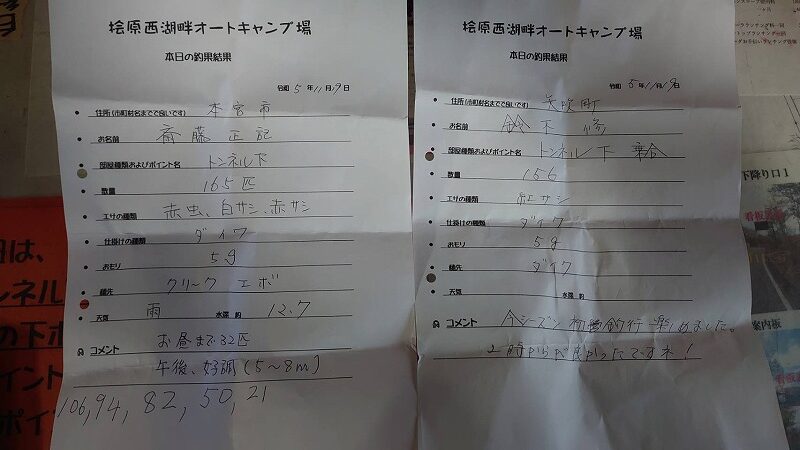 桧原西湖畔オートキャンプ場
本日の釣果結果
令和 5 年 11 月 19 日
住所(市町村名までで良いです) 本宮市
お名前 斎藤 正記
部屋種類およびポイント名 トンネル下
数量 165匹
エサの種類 赤虫、白サシ、赤サシ
仕掛けの種類 ダイワ
おもり 5g
穂先 クリーク エボ
天気 雨 水深 約 12.7
コメント お昼まで32匹
午後、好調(5~8m)
106, 94, 82, 50, 21
桧原西湖畔オートキャンプ場
本日の釣果結果
令和 5年11月19日
住所(市町村名までで良いです) 矢吹町
お名前 鈴木 修
部屋種類およびポイント名 トンネル下 乗合
数量 156
エサの種類 紅サシ
仕掛けの種類 ダイワ
おもり 5g
穂先 ダイワ
天気 水深 約
コメント 今シーズン初 釣行 楽しめました。
2時からが良かったですね!
日は、
ンネル
の下ポ
イント
ポイン
下降り口1
案内板